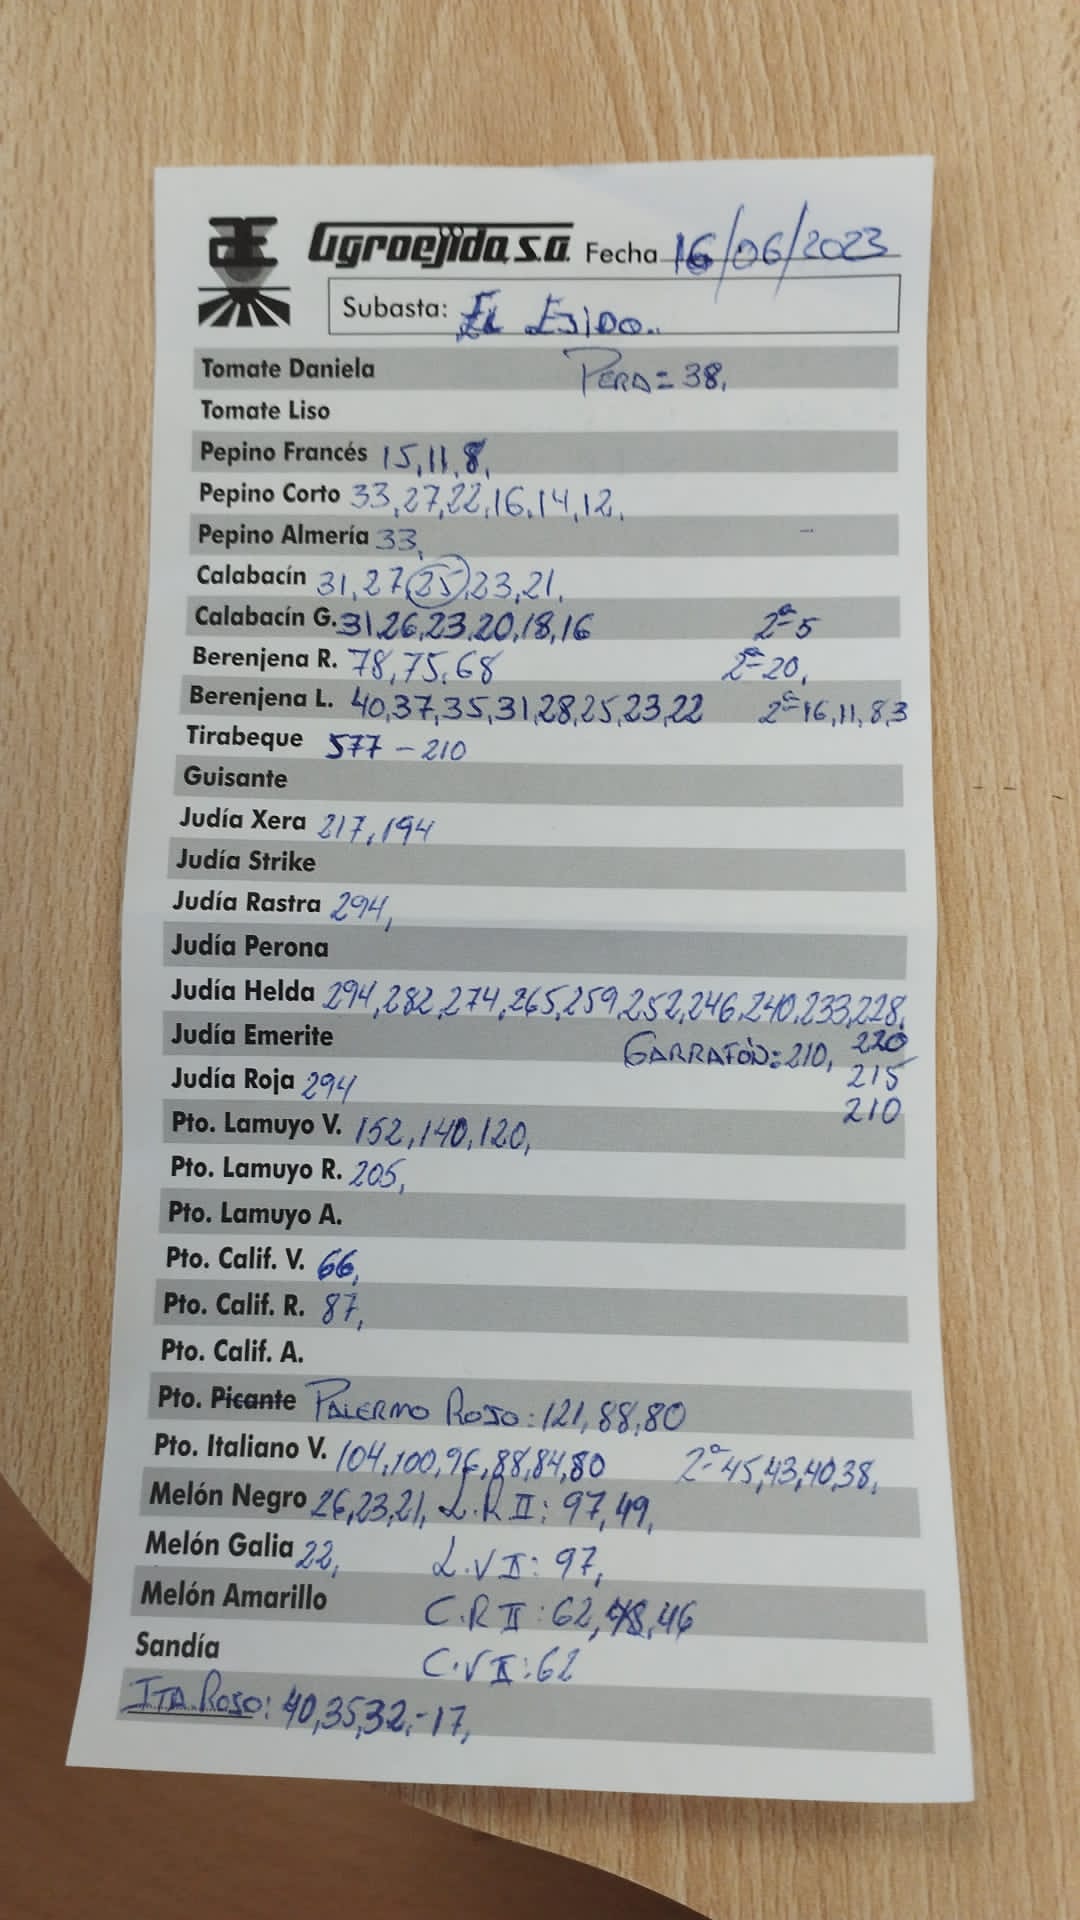 Agroejido, S.A. Fecha 16/06/2023
Subasta: EL EJIDO.
Tomate Daniela PERA = 38,
Tomate Liso
Pepino Francés 15,11,8,
Pepino Corto 33,27,22,16,14,12,
Pepino Almería 33,
Calabacín 31,27,25,23,21,
Calabacín G. 31,26,23,20,18,16 2ª=5
Berenjena R. 78,75,68 2ª=20,
Berenjena L. 40,37,35,31,28,25,23,22 2ª=16,11,8,3
Tirabeque 577 - 210
Guisante
Judía Xera 217,194
Judía Strike
Judía Rastra 294,
Judía Perona
Judía Helda 294,282,274,265,259,252,246,240,233,228,
220
Judía Emerite GARRAFÓN: 210,
215
Judía Roja 294
210
Pto. Lamuyo V. 152,140,120,
Pto. Lamuyo R. 205,
Pto. Lamuyo A.
Pto. Calif. V. 66,
Pto. Calif. R. 87,
Pto. Calif. A.
Pto. Picante PALERMO ROJO: 121,88,80
Pto. Italiano V. 104,100,96,88,84,80 2ª=45,43,40,38,
Melón Negro 26,23,21, L.R II: 97,49,
Melón Galia 22, L.V II: 97,
Melón Amarillo C.R II: 62,48,46
Sandía C.V II: 62
ITA ROJO: 40,35,32,-17,